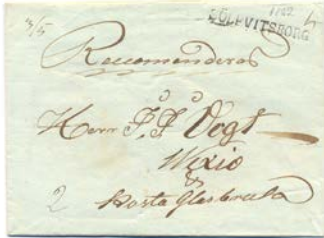 3/5
SÖLVITSBORG
Reccomenderas
Herr J. J. Vogt
Wexio
&
Kosta Glasbruk
2